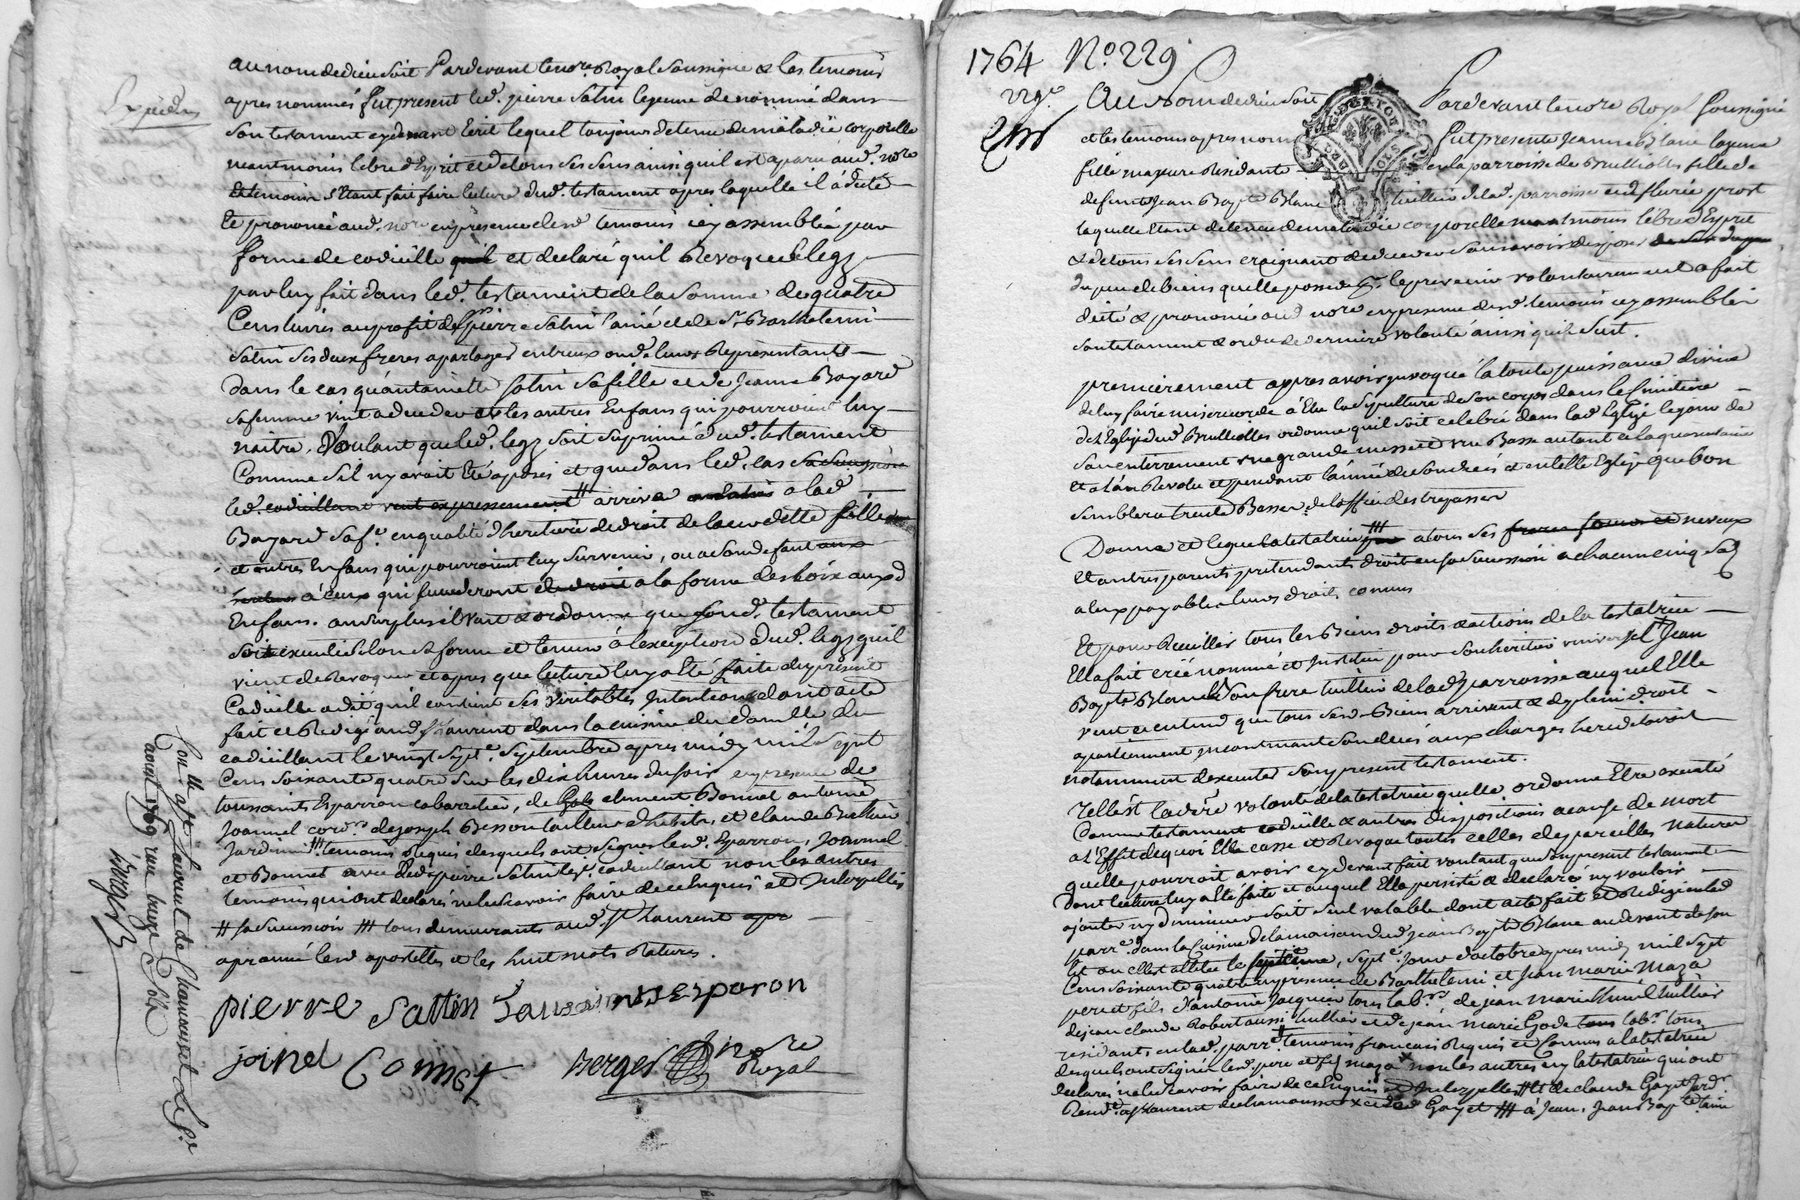 au nom de dieu soit Pardevant le nore Royal soussigné & les temoins
apres nommés fut present led. pierre satin lejeune denommé dans
son testament cydevant Ecrit lequel toujours detenu de maladie corporelle
neantmoins libre d'Esprit et de tous ses sens ainsi quil est aparu aud. nore
& temoins s'Etant fait faire lecture dud. testament apres laquelle il a dicté
et prononcé aud. nore en presence desd. temoins icy assemblés par
forme de codicille et declaré quil Revoque le legz
par luy fait dans led. testament de la somme de quatre
Cens livres au profit de pierre satin l'ainé et de Sr Barthelemi
satin ses deux freres a partager entreux ou a leurs Representants
dans le cas qu'antoinette satin sa fille et de Jeanne Bayard
sa femme vint a deceder et les autres Enfans qui pourroient luy
naitre, Voulant que led. legz soit suprimé aud. testament
Comme sil ny avoit Eté aposé et que dans led. cas
led. codicillant veut expressement # arrive a lad.
Bayard sa fe. en qualité d'heritiere de droit de lad. fille
et autres Enfans qui pourroient luy survenir, ou a son defaut
a ceux qui succederont a la forme des loix auxd
Enfans. au surplus il veut & ordonne que sond. testament
soit executé selon sa forme et teneur a l'exception dud. legz quil
vient de Revoquer et apres que lecture luy a Eté faite du present
Codicille a dit quil contient ses veritables Intentions dont acte
fait et Redigé aud. St Laurent dans la cuisine du domicille du
codicillant le vingt sept.e septembre apres midy mil sept
Cens soixante quatre sur les dix heures du soir en presence de
toussaints Esparron cabarretier, de clement Bonnet antoine
Joannel cord.r de joseph Besson tailleur d'habits, et claude Berthier
Jardinier ### temoins Requis desquels ont signés lesd. Esparron, Joannel
et Bonnet avec led. pierre satin codicillant non les autres
temoins qui ont declarés ne le scavoir faire de ce Enquis et Interpellés
# sa succession ### tous demeurants aud. St Laurent
aprouvé lesd. apostilles et les huit mots Raturés.
pierre sattin Toussaint Esparon
joanel Bonnet Berger nore Royal
Expédiée
Con.llé a St Laurent de Chamousset le 9.e
aout 1769 reçu treize sols
Berger
1764 No. 229
229e
Au Nom de dieu soit Pardevant le nore Royal soussigné
et les temoins apres nommés fut presente Jeanne Blanc lajeune
fille majeure Residante en la parroisse de Brullioles fille de
defunt Jean Bapte Blanc tuillier de lad. parroisse et de fleurie prost
laquelle Etant detenue de maladie corporelle neantmoins libre d'Esprit
& de tous ses sens craignant de deceder sans avoir disposé
du peu de biens quelle possede le prevenir volontairement a fait
dicté & prononcé aud nore en presence desd. temoins icy assemblés
son testament & ordce de derniere volonté ainsi quil suit.
premierement apres avoir invoqué la toute puissance divine
de luy faire misericorde a Elu la sepulture de son corps dans le cimitiere
de l'Eglise dud. Brullioles ordonne quil soit celebré dans lad. Eglise le jour de
son enterrement une grande messe et une Basse autant a la quarantaine
et a l'an Revolu et pendant l'année de son decés et en telle Eglise que bon
semblera trente Basses de l'office des trepassés
Donne et legue la testatrice ### a tous ses neveux
Et autres parents pretendants droit en sa succession a chacun cinq sols
a eux payables leurs droits connus
Et pour Recuillir tous les Biens droits & actions de la testatrice
Ella fait créé nommé et Institué pour son heritier universel Sr Jean
Bapte Blanc son frere tuillier de lad. parroisse auquel Elle
veut et entend que tous sesd. Biens arrivent & de plein droit
apartiennent incontinant son decés aux charges hereditaires
notamment d'executer son present testament.
Telle est la derre volonté de la testatrice quelle ordonne Etre executé
Comme testament codicille & autres dispositions a cause de mort
a l'Effet de quoi Elle casse et Revoque toutes celles de pareilles natures
quelle pourroit avoir cydevant fait voulant que son present testament
Dont lecture luy a Eté faite et auquel Ella persisté & declaré ny vouloir
ajouter ny diminuer soit seul valable dont acte fait et Redigé en lad
parre. dans la cuisine de la maison dud. Jean Bapte Blanc au devant de son
lit ou Elle est alitée le sept.e jour d'octobre apres midy mil sept
Cens soixante quatre en presence de Barthelemi et Jean marie Mazà
pere et fils, d'antoine Jacquier tous lab.rs de jean marie tuillier
de jean claude Robert aussi tuillier et de jean marie Gode lab.r tous
residants en lad. parre. # temoins francois Requis et Connus a la testatrice
desquels ont signé lesd. pere et fils mazà non les autres ny la testatrice qui ont
declarés ne le scavoir faire de ce Enquis et Interpellés ## et de claude Gayet Jard.r
Resid.t a St Laurent de chamousset x et led Gayet ### à Jean, Jean Bapte